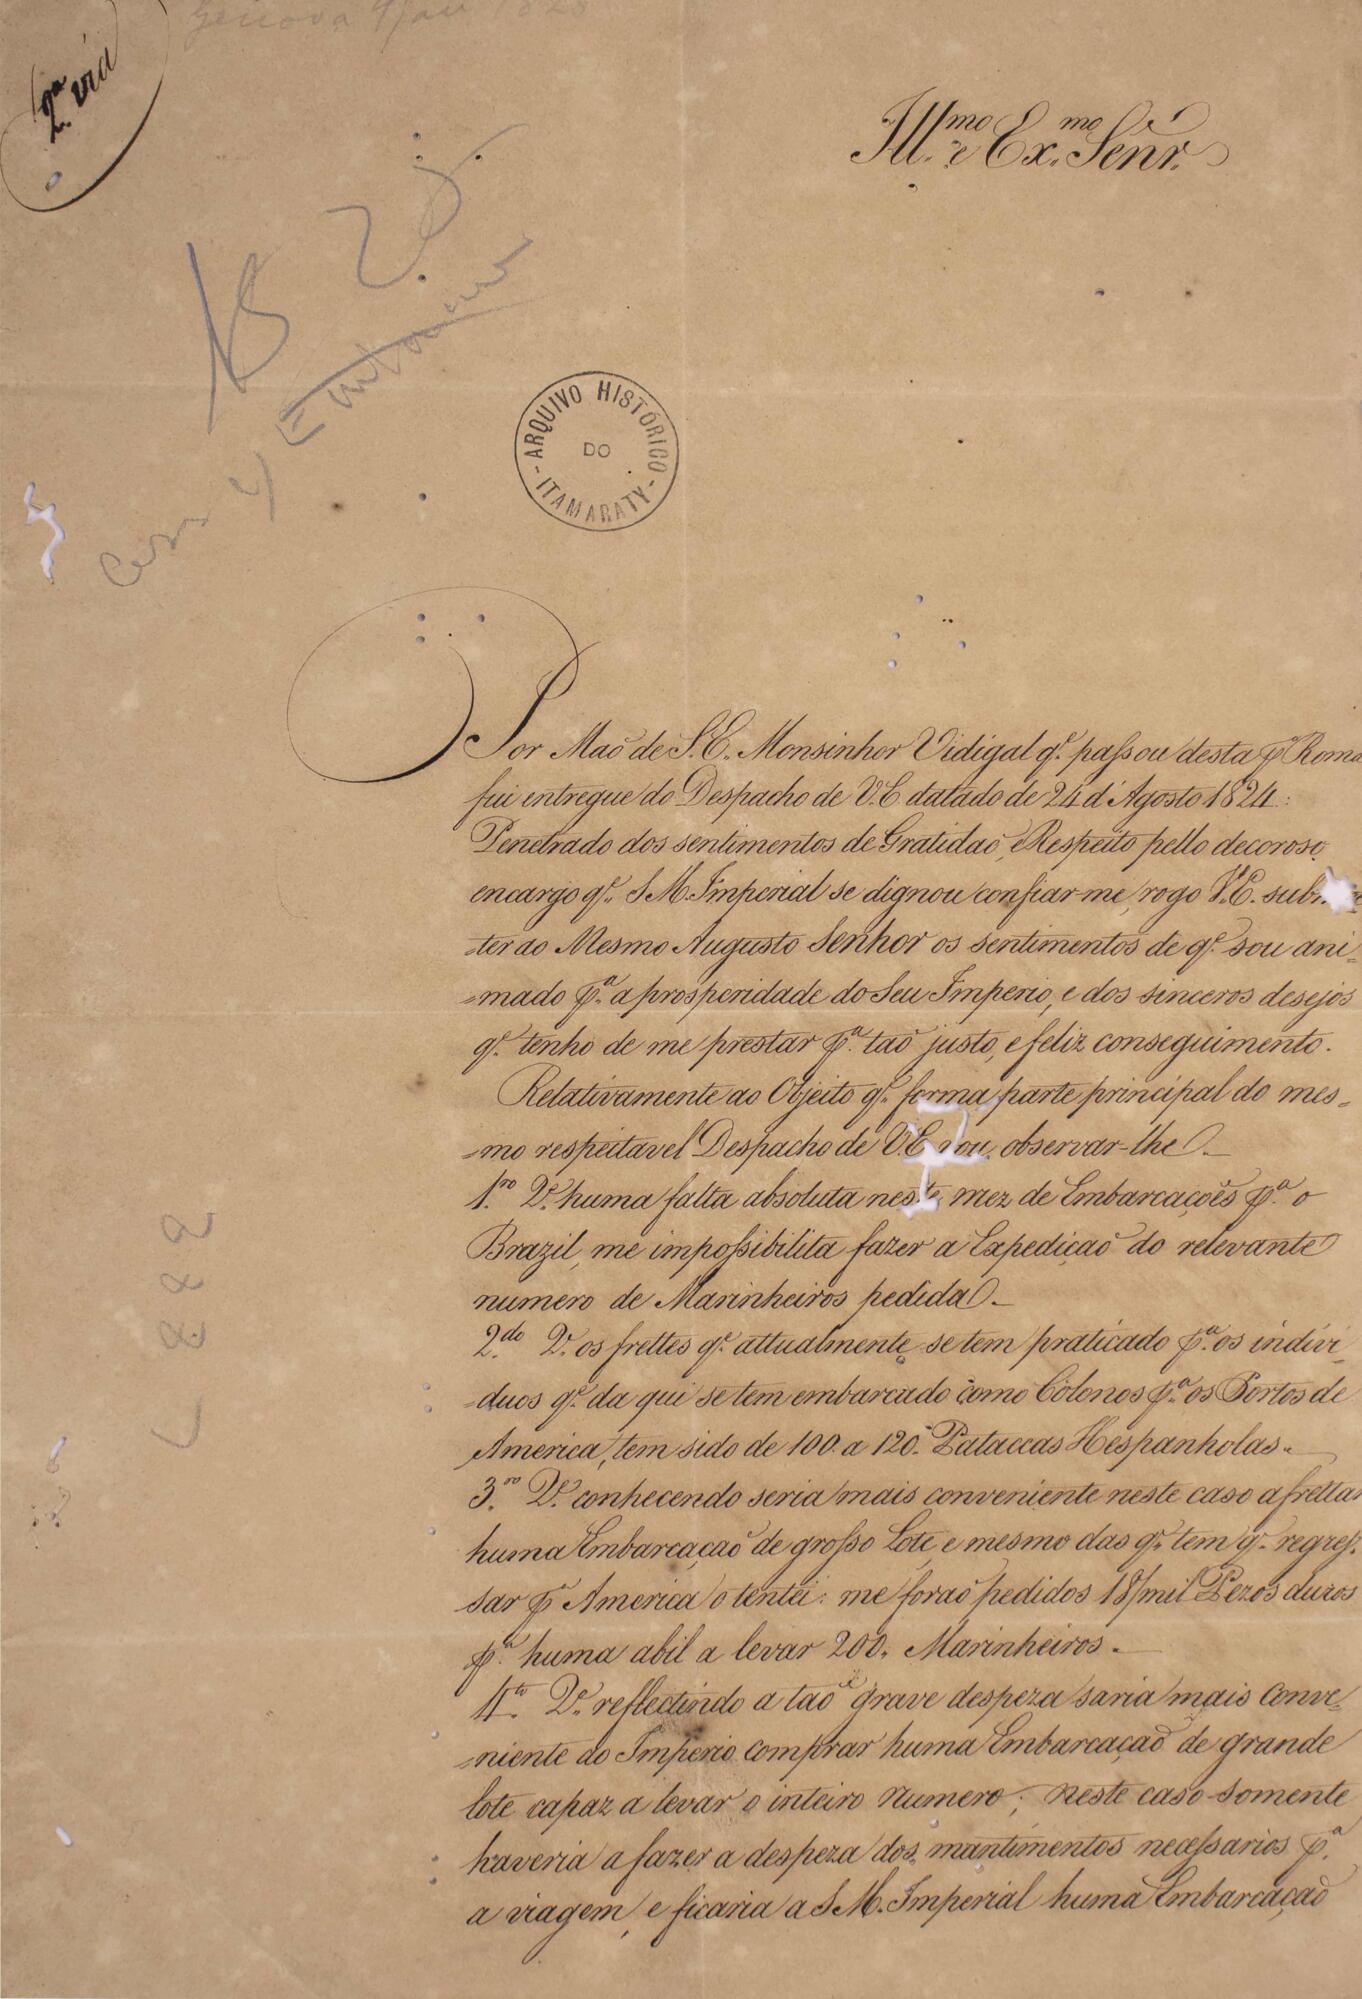 Genova
2.ª via
Ill.mo e Ex.mo Señr.
ARQUIVO HISTÓRICO
DO
- ITAMARATY -
Por Maõ de S.E. Monsinhor Vidigal q.e passou desta p.a Roma
fui entregue do Despacho de V.E. datado de 24 d'Agosto 1824:
Penetrado dos sentimentos de Gratidaõ, e Respeito pello decoroso
encargo q.e S.M. Imperial se dignou confiar-me, rogo V.E.
=ter ao Mesmo Augusto Senhor os sentimentos de q.e sou ani=
=mado p.a a prosperidade do Seu Imperio, e dos sinceros desejos
q.e tenho de me prestar p.a taõ justo, e feliz conseguimento.
Relativamente ao Objeito q.e forma parte principal do mes=
=mo respeitavel Despacho de V.E. vou observar-lhe
1.ro Q.e huma falta absoluta neste mez de Embarcações p.a o
Brazil, me impossibilita fazer a Expediçaõ do relevante
numero de Marinheiros pedida
2.do Q.e os frettes q.e attualmente se tem praticado p.a os indivi=
=duos q.e da qui se tem embarcado como Colonos p.a os Portos de
America, tem sido de 100. a 120. Pataccas Hespanholas.
3.ro Q.e conhecendo seria mais conveniente neste caso afrettar
huma Embarcaçaõ de grosso Lote, e mesmo das q.e tem q.e regres=
sar p.a America o tentei: me foraõ pedidos 18/mil Pezos duros
p.a huma abil a levar 200. Marinheiros.
4.to Q.e reflectindo a taõ grave despeza saria mais conve=
=niente ao Imperio comprar huma Embarcaçaõ de grande
lote capaz a levar o inteiro numero; neste caso somente
haveria a fazer a despeza dos mantimentos necessarios p.a
a viagem, e ficaria a S.M. Imperial huma Embarcaçaõ